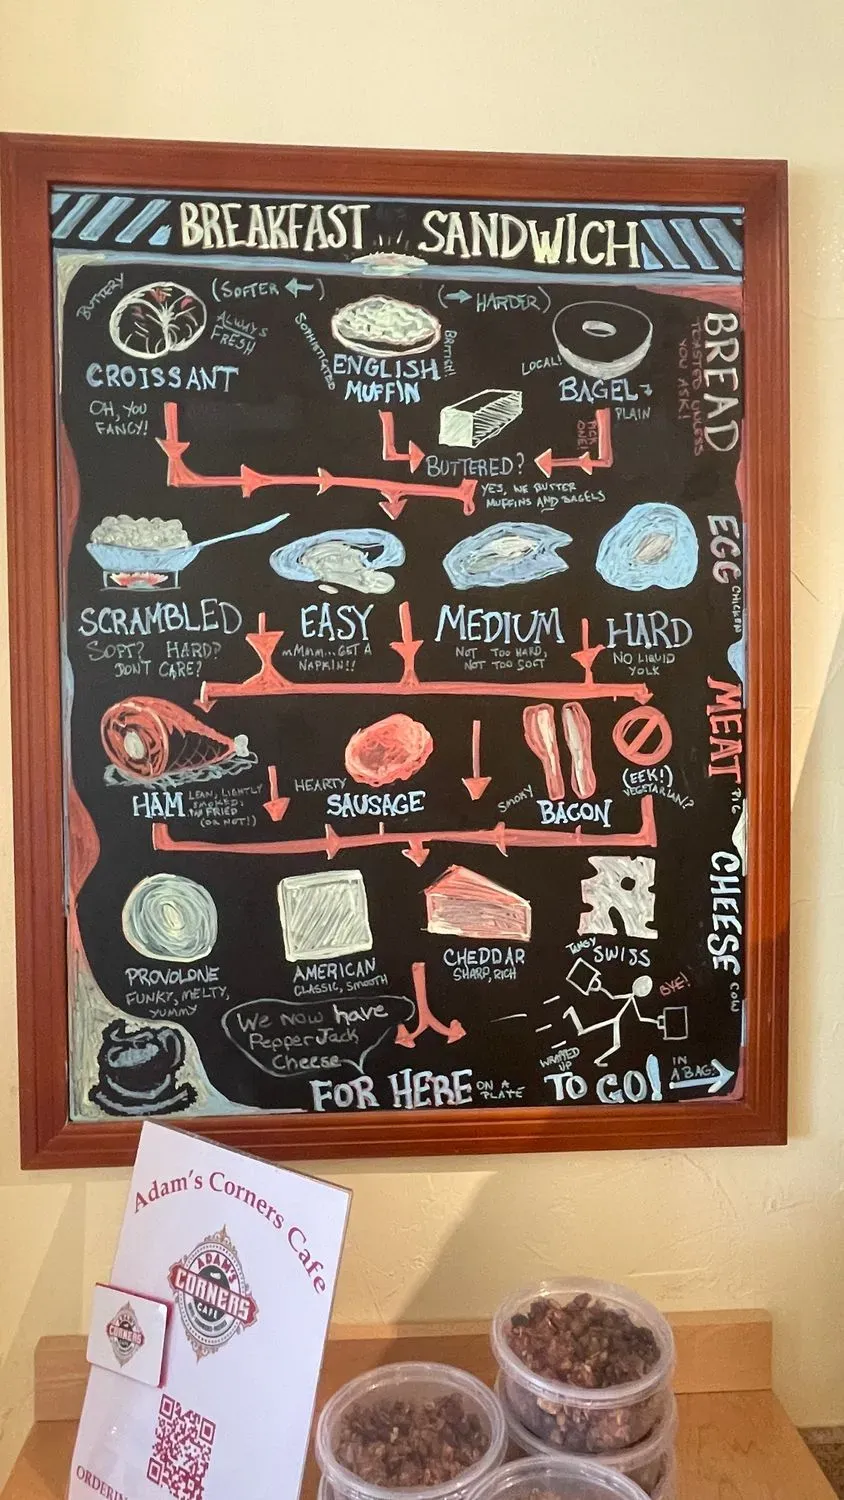 BREAKFAST SANDWICH
BUTTERY
(SOFTER ←)
(→ HARDER)
ALWAYS
FRESH
SOPHISTICATED
BRITISH!
LOCAL!
CROISSANT
ENGLISH
MUFFIN
BAGEL
PLAIN
OH, YOU
FANCY!
PICK
ONE!
BUTTERED?
YES, WE BUTTER
MUFFINS AND BAGELS
BREAD
TOASTED UNLESS
YOU ASK!
EGG
CHICKEN
SCRAMBLED
SOFT? HARD?
DON'T CARE?
EASY
MMMM...GET A
NAPKIN!!
MEDIUM
NOT TOO HARD,
NOT TOO SOFT
HARD
NO LIQUID
YOLK
MEAT
PIG
HAM
LEAN, LIGHTLY
SMOKED,
PAN FRIED
(OR NOT!)
HEARTY
SAUSAGE
SMOKY
BACON
(EEK!)
VEGETARIAN?
CHEESE
COW
PROVOLONE
FUNKY, MELTY,
YUMMY
AMERICAN
CLASSIC, SMOOTH
CHEDDAR
SHARP, RICH
TANGY
SWISS
We now have
Pepper Jack
Cheese
BYE!
WRAPPED
UP
FOR HERE
ON A
PLATE
TO GO!
IN
A BAG
Adam's Corners Cafe
ADAM'S
CORNERS
CAFE
CORNERS